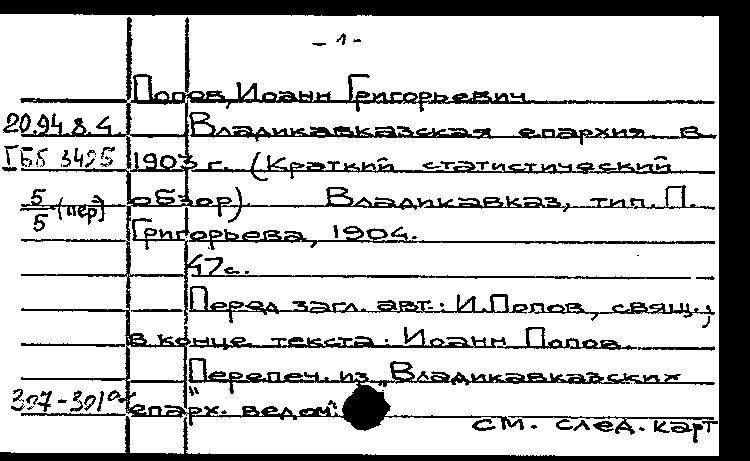 - 1 -
Попов, Иоанн Григорьевич
20.94.8.4. Владикавказская епархия в
ГББ 3495 1903 г. (Краткий статистический
5/5 (пер) обзор) Владикавказ, тип. П.
Григорьева, 1904.
47с.
Перед загл. авт.: И.Попов, свящ.;
в конце текста: Иоанн Попов.
Перепеч. из „Владикавказских
епарх. ведом".
см. след. карт